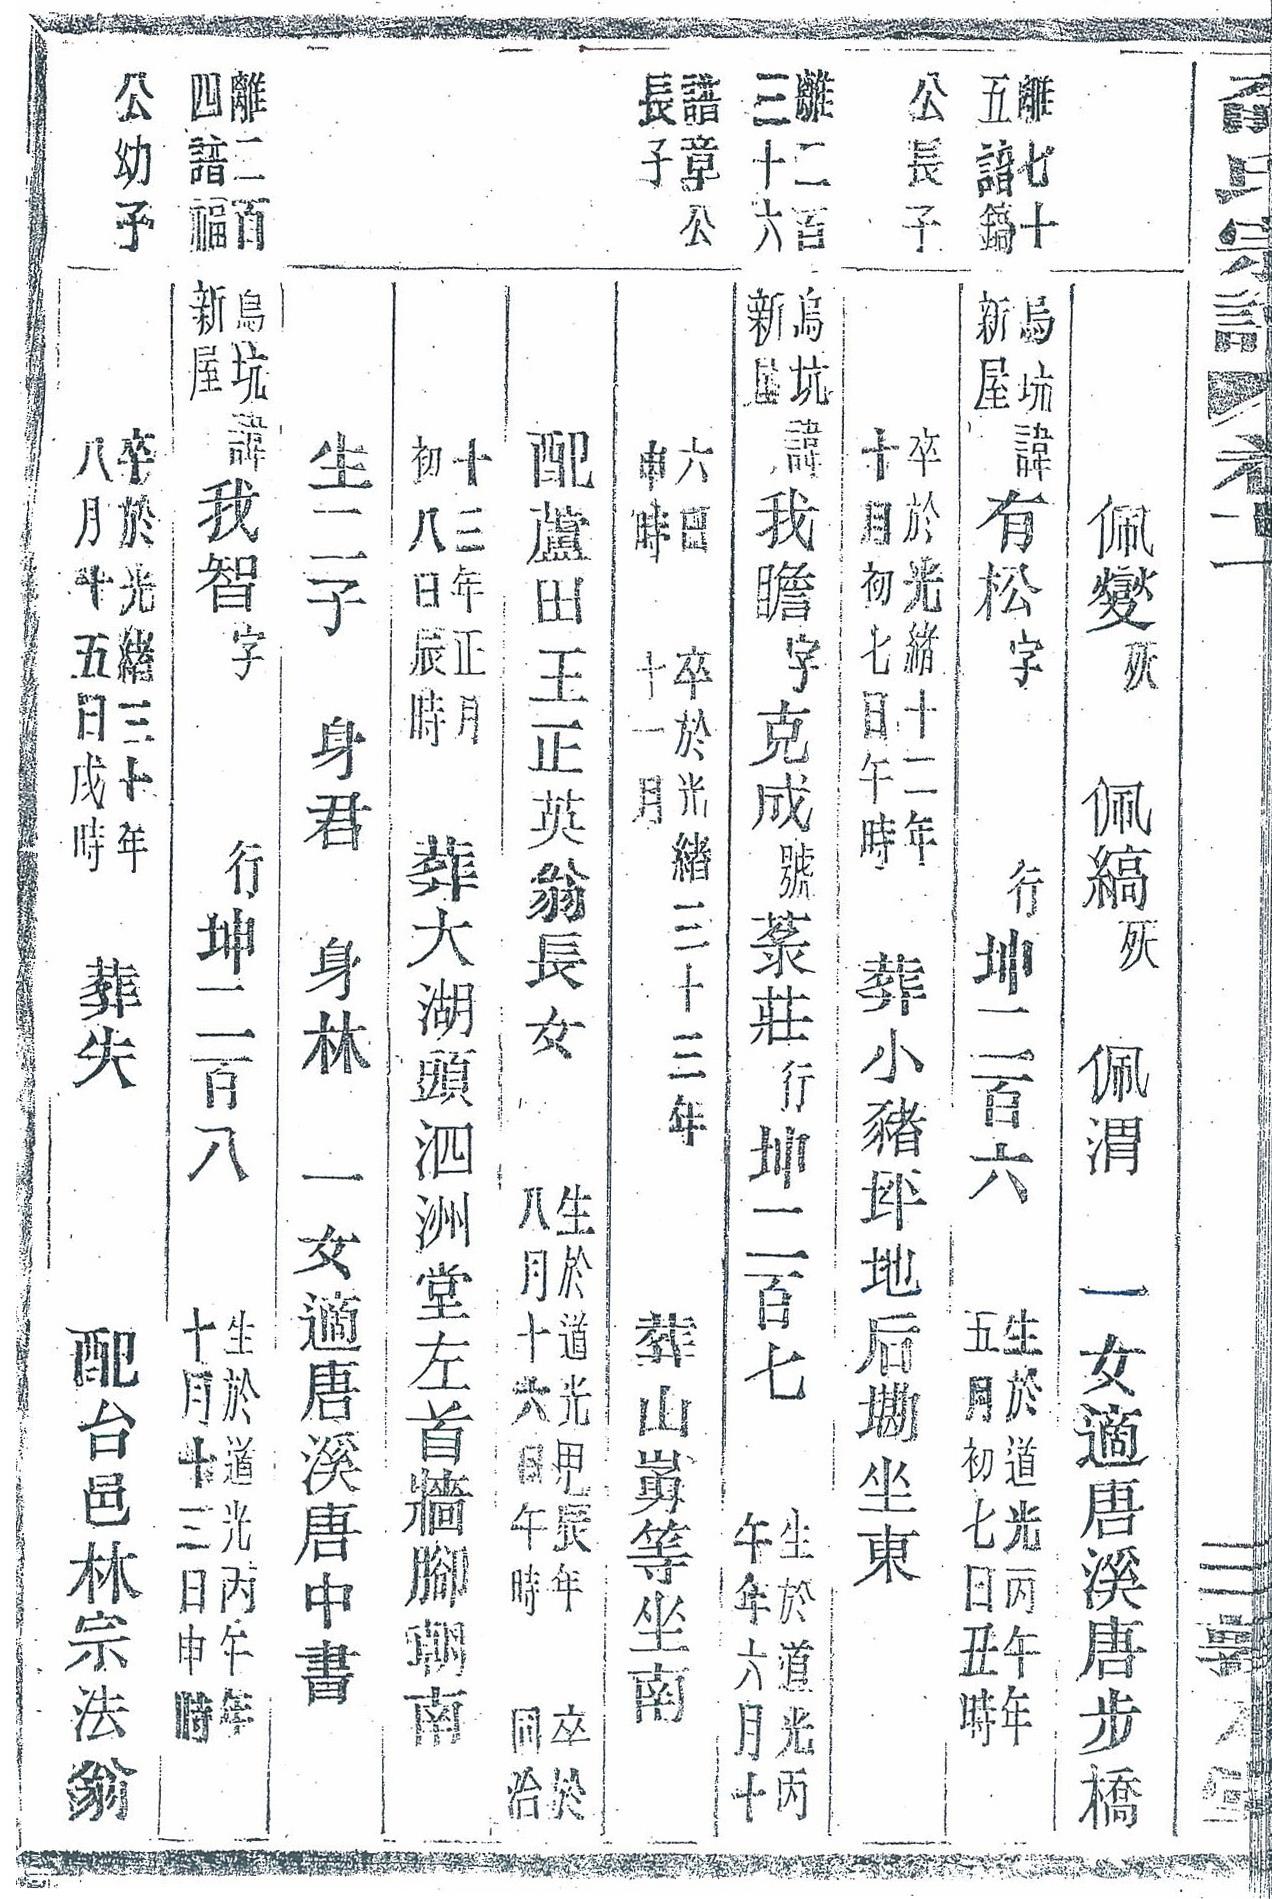 氏宗譜 卷十一
三
佩燮殀 佩縞殀 佩渭 一女適唐溪唐步橋
離七十五諱鎬公長子
烏坑新屋諱有松字 行坤二百六 生於道光丙午年五月初七日丑時
卒於光緒十二年十月初七日午時 葬小豬邱地后坐東
離二百三十六諱章公長子
烏坑新屋諱我瞻字克成號菉莊行坤二百七 生於道光丙午年六月十
六日申時 卒於光緒三十三年十一月 葬山等坐南
配蘆田王正英翁長女 生於道光甲辰年八月十六日午時 卒於同治
十三年正月初八日辰時 葬大湖頭泗洲堂左首牆腳朝南
生二子 身君 身林 一女適唐溪唐中書
離二百四諱福公幼子
烏坑新屋諱我智字 行坤二百八 生於道光丙午年十月十三日申時
卒於光緒三十年八月十五日戌時 葬失 配台邑林宗法翁